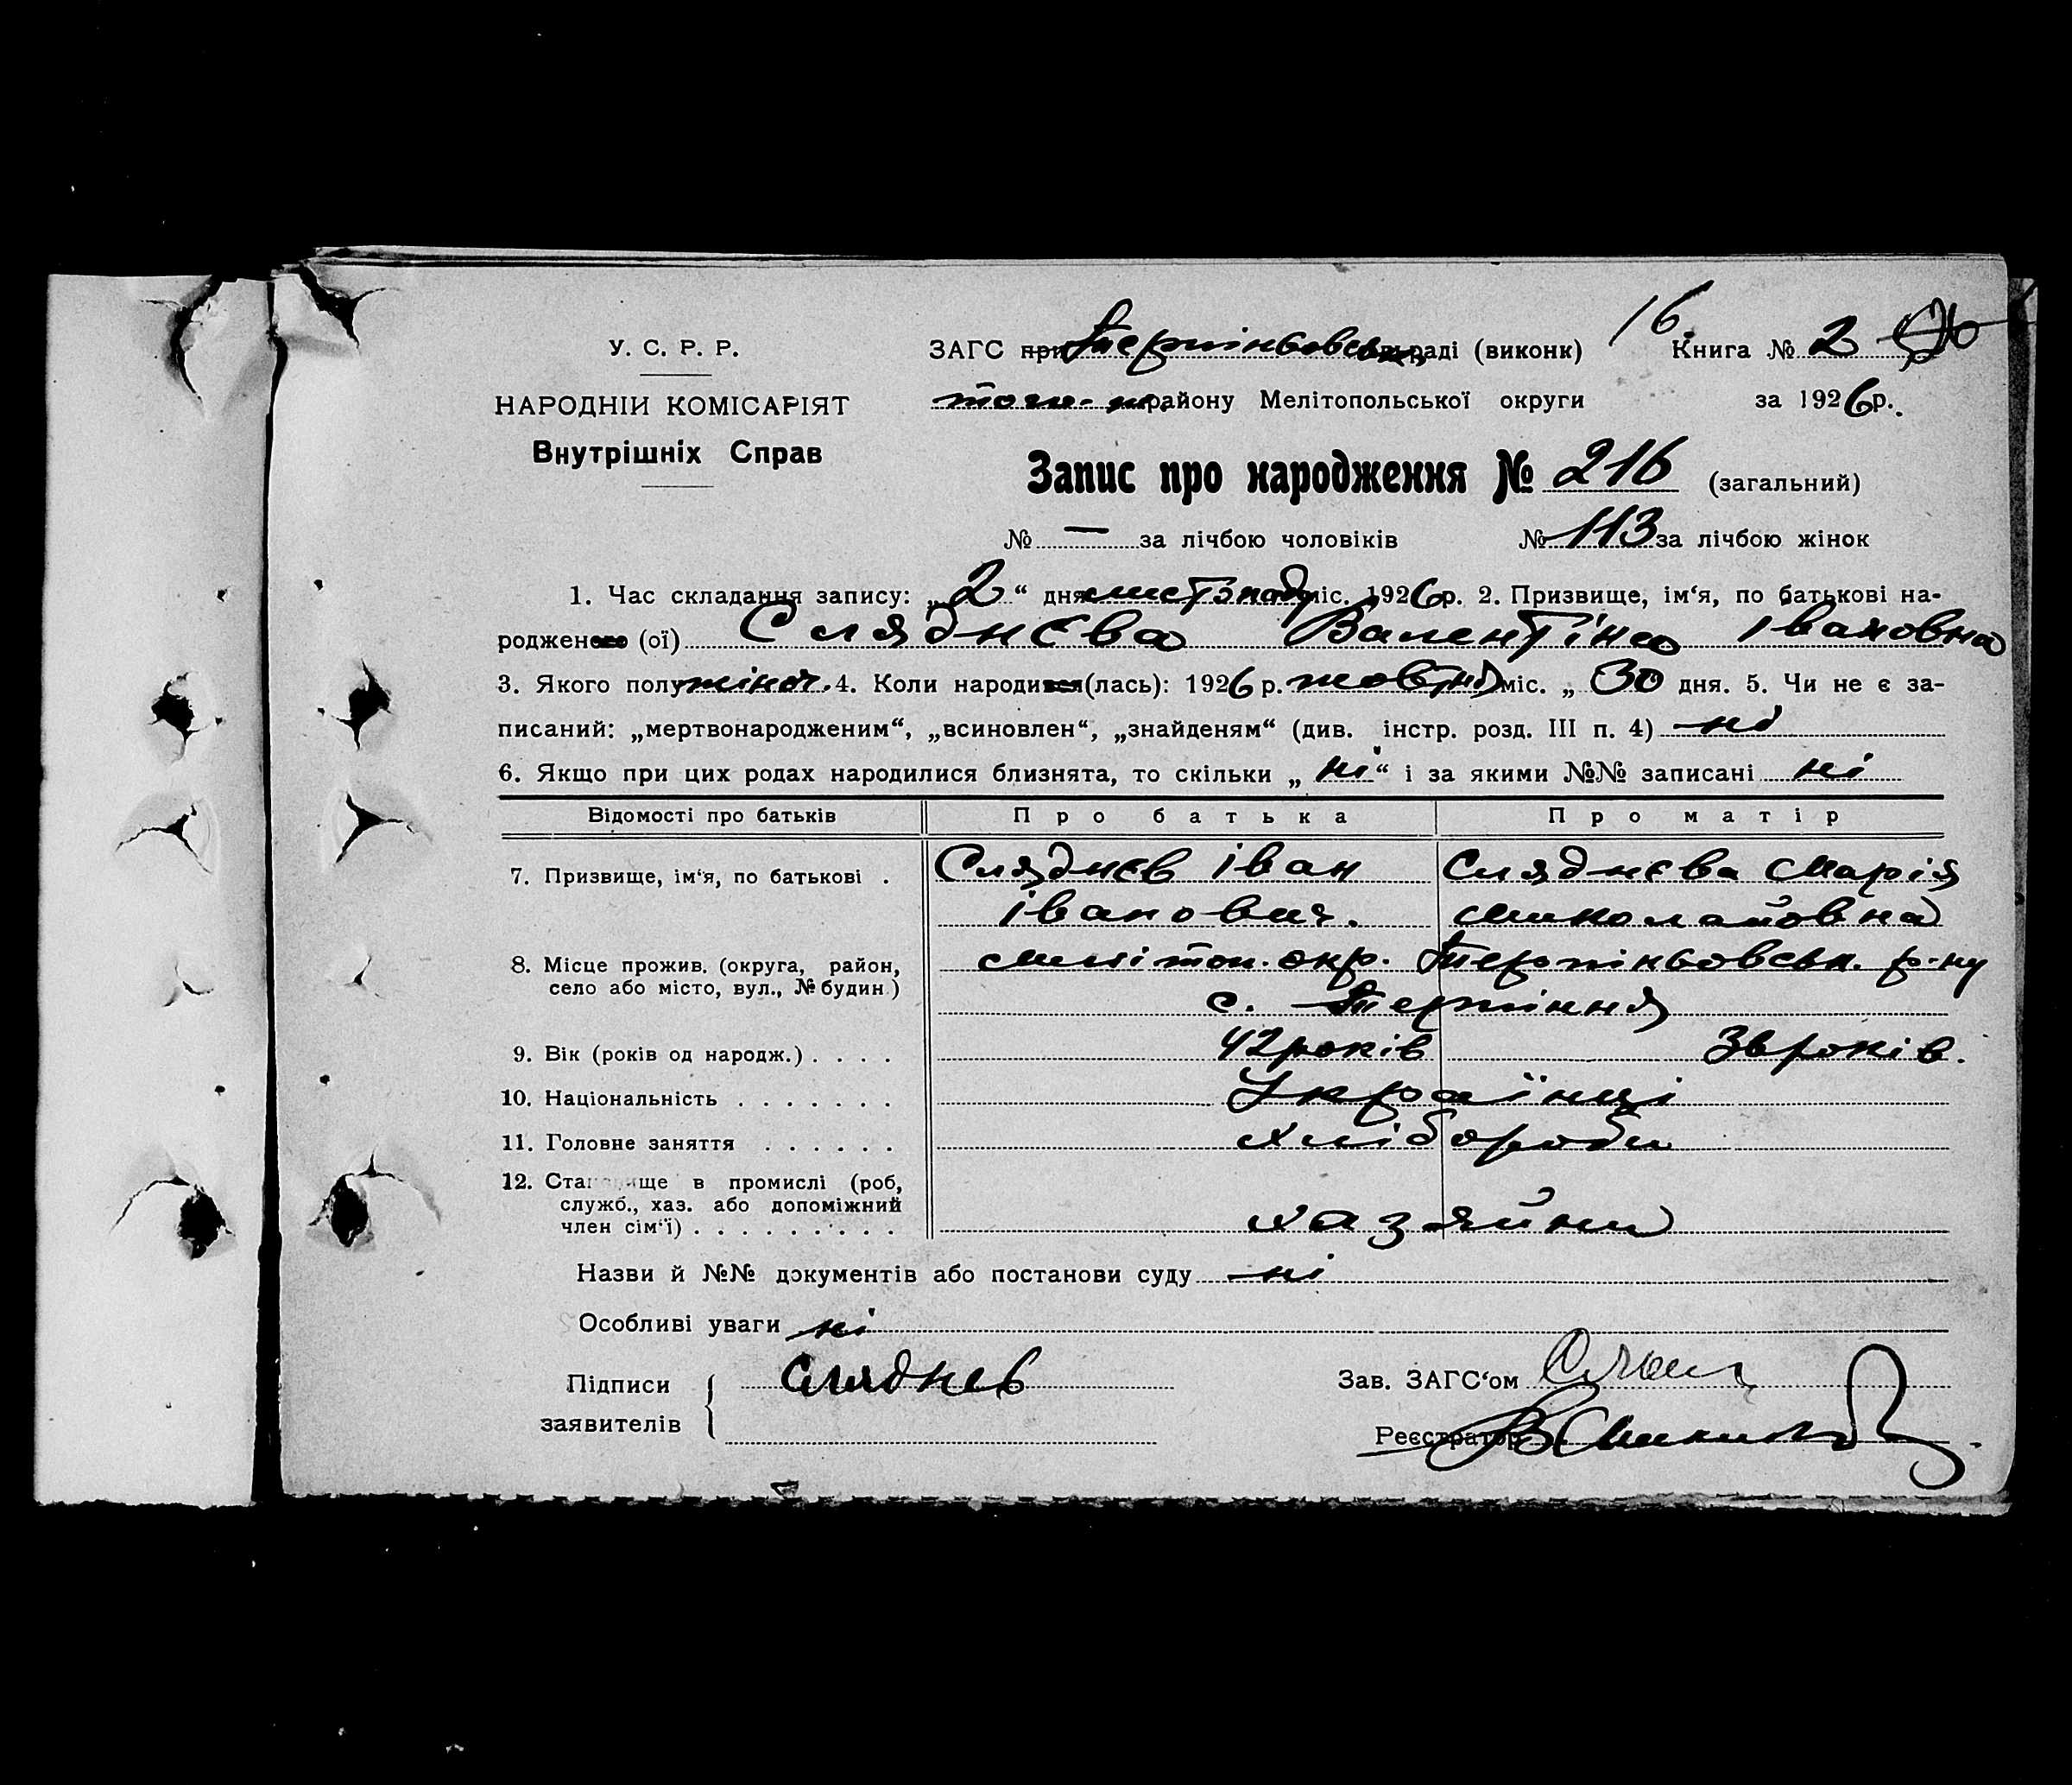 16.
У. С. Р. Р.
ЗАГС при Терпіньовськ. раді (виконк) Книга № 2
НАРОДНІЙ КОМІСАРІЯТ
того-ж району Мелітопольської округи за 1926 р.
Внутрішніх Справ
Запис про народження № 216 (загальний)
№ — за лічбою чоловіків № 113 за лічбою жінок
1. Час складання запису: „2“ дня листопада міс. 1926 р. 2. Призвище, ім‘я, по батькові на-
родженого (ої) Сляднєва Валентіна Івановна
3. Якого полу жіноч. 4. Коли народився(лась): 1926 р. жовтня міс. „30 дня. 5. Чи не є за-
писаний: „мертвонародженим“, „всиновлен“, „знайденям“ (див. інстр. розд. III п. 4) ні
6. Якщо при цих родах народилися близнята, то скільки „ні“ і за якими №№ записані ні
Відомості про батьків Про батька Про матір
7. Призвище, ім‘я, по батькові . Сляднєв Іван Сляднєва Марія
Іванович. Миколайовна
8. Місце прожив. (округа, район, Меліт оп. окр. Терпіньовськ. р-ну
село або місто, вул., № будин.) с. Терпіння
9. Вік (років од народж.) . . . . 42 років 36 років.
10. Національність . . . . . . . Українці
11. Головне заняття . . . . . . хлібороби
12. Становище в промислі (роб,
служб., хаз. або допоміжний
член сім‘ї) . . . . . . . . . хазяйни
Назви й №№ документів або постанови суду ні
Особливі уваги ні
Підписи Сляднев Зав. ЗАГС‘ом
заявителів Реєстратор